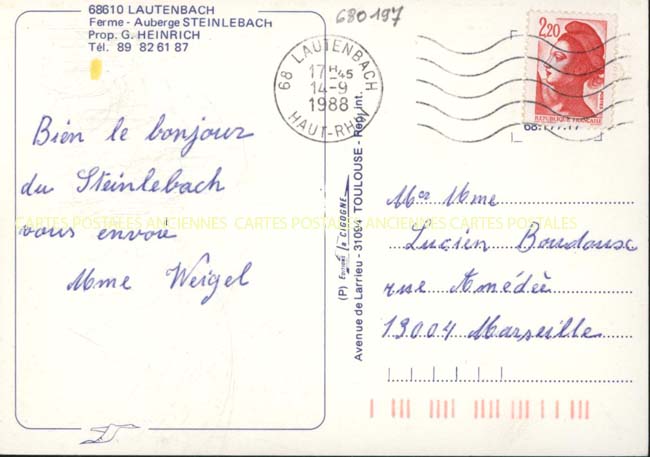 68610 LAUTENBACH
Ferme - Auberge STEINLEBACH
Prop. G. HEINRICH
Tél. 89 82 61 87
680197
68 LAUTENBACH
17H45
14-9
1988
HAUT-RHIN
2,20
REPUBLIQUE FRANÇAISE
Bien le bonjour
du Steinlebach
vous envoie
Mme Weigel
CARTES POSTALES ANCIENNES CARTES POSTALES ANCIENNES CARTES POSTALES
(P) Editions la CIGOGNE
Avenue de Larrieu - 31094 TOULOUSE - Rep. Int.
Mr Mme
Lucien Boudouxe
rue Amédée
13004 Marseille